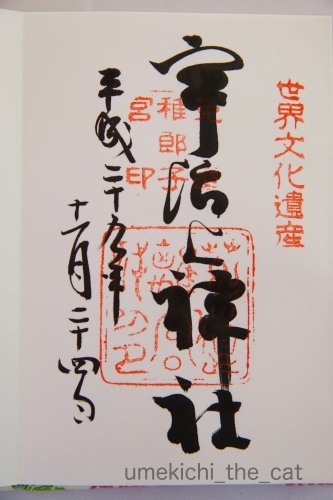 世界文化遺産
宇治上神社
稚郎子
宮印
平成二十九年
十一月二十四日
umekichi_the_cat